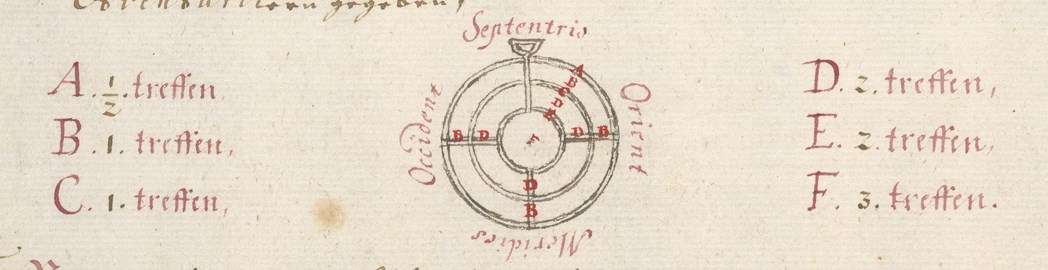 gegeben,
Septentrio
A. 1/2. treffen
B. 1. treffen,
C. 1. treffen,
Occident
A
B
C
D
E
B D F D B
D
B
Orient
Meridies
D. 2. treffen,
E. 2. treffen,
F. 3. treffen.